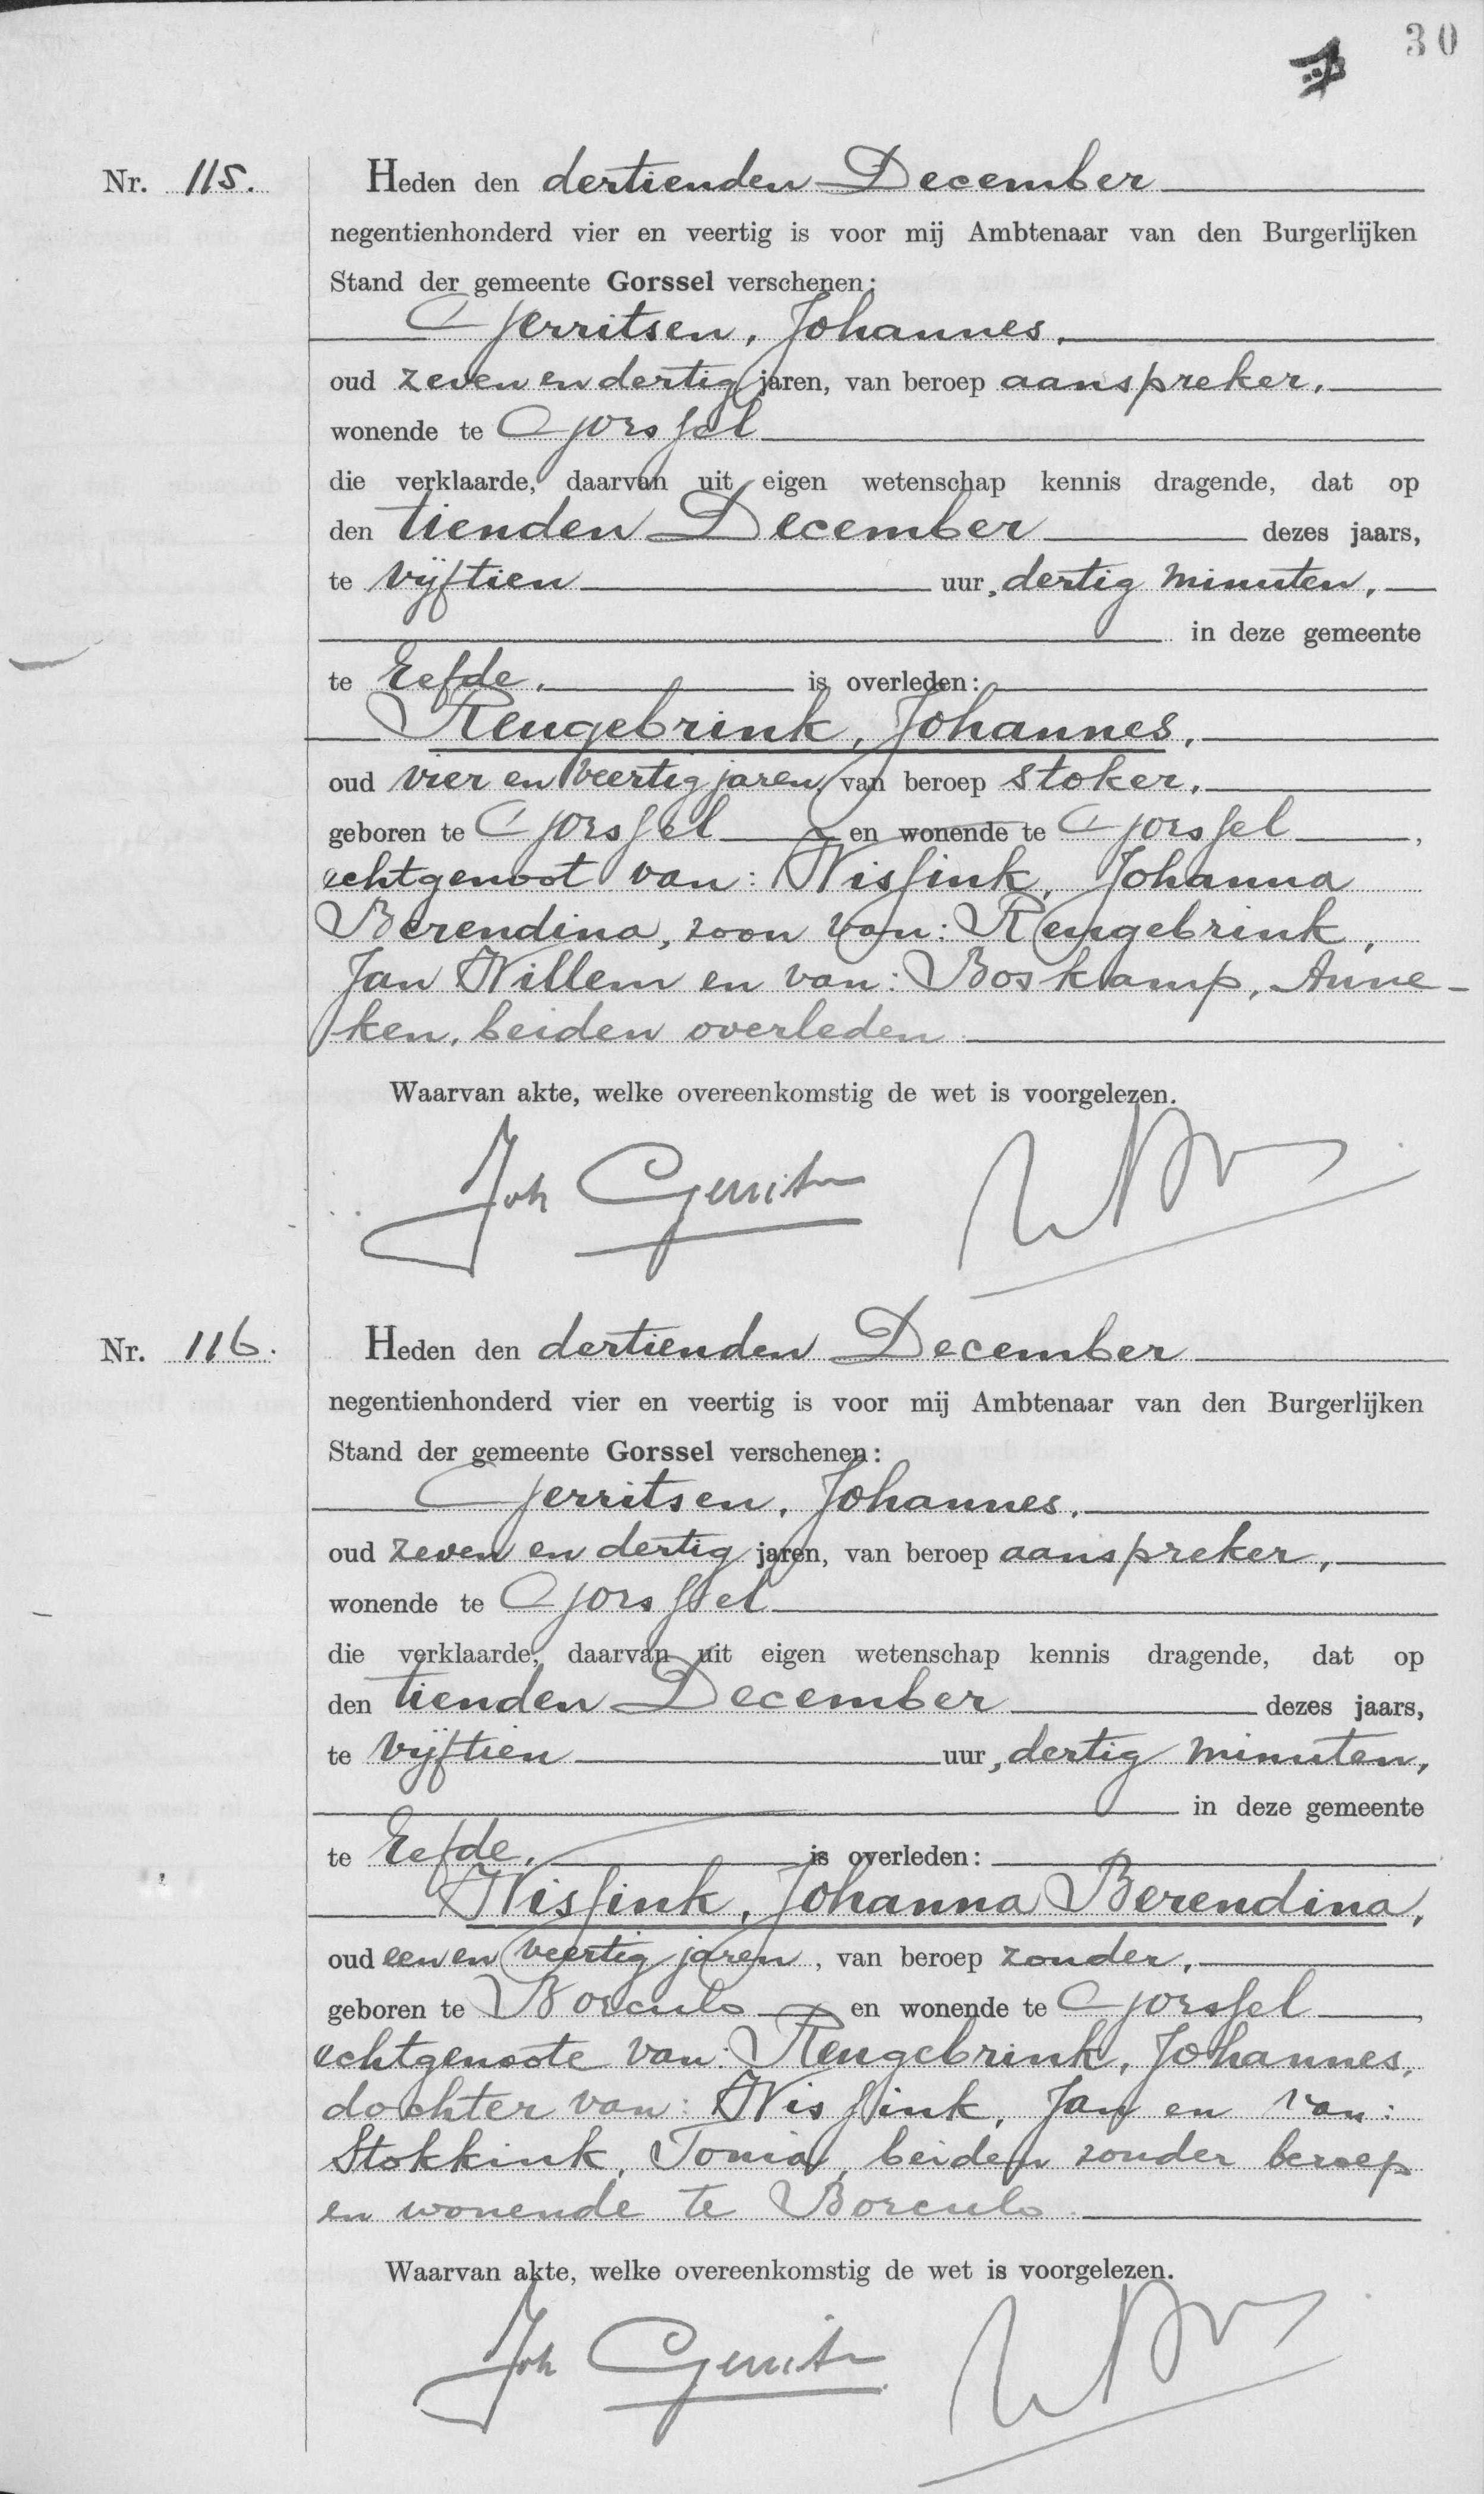 30
Nr. 115.
Heden den dertienden December
negentienhonderd vier en veertig is voor mij Ambtenaar van den Burgerlijken
Stand der gemeente Gorssel verschenen:
Gerritsen, Johannes,
oud zeven en dertig jaren, van beroep aanspreker,
wonende te Gorssel
die verklaarde, daarvan uit eigen wetenschap kennis dragende, dat op
den tienden December dezes jaars,
te vijftien uur, dertig minuten,
in deze gemeente
te Eefde, is overleden:
Rengebrink, Johannes,
oud vier en veertig jaren, van beroep stoker,
geboren te Gorssel en wonende te Gorssel,
echtgenoot van: Wissink, Johanna
Berendina, zoon van: Rengebrink,
Jan Willem en van: Boskamp, Anne-
ken, beiden overleden.
Waarvan akte, welke overeenkomstig de wet is voorgelezen.
Joh Gerritsen
Nr. 116.
Heden den dertienden December
negentienhonderd vier en veertig is voor mij Ambtenaar van den Burgerlijken
Stand der gemeente Gorssel verschenen:
Gerritsen, Johannes,
oud zeven en dertig jaren, van beroep aanspreker,
wonende te Gorssel
die verklaarde, daarvan uit eigen wetenschap kennis dragende, dat op
den tienden December dezes jaars,
te vijftien uur, dertig minuten,
in deze gemeente
te Eefde, is overleden:
Wissink, Johanna Berendina,
oud een en veertig jaren, van beroep zonder,
geboren te Borculo en wonende te Gorssel,
echtgenoote van: Rengebrink, Johannes,
dochter van: Wissink, Jan en van:
Stokkink, Tonia, beiden zonder beroep
en wonende te Borculo.
Waarvan akte, welke overeenkomstig de wet is voorgelezen.
Joh Gerritsen